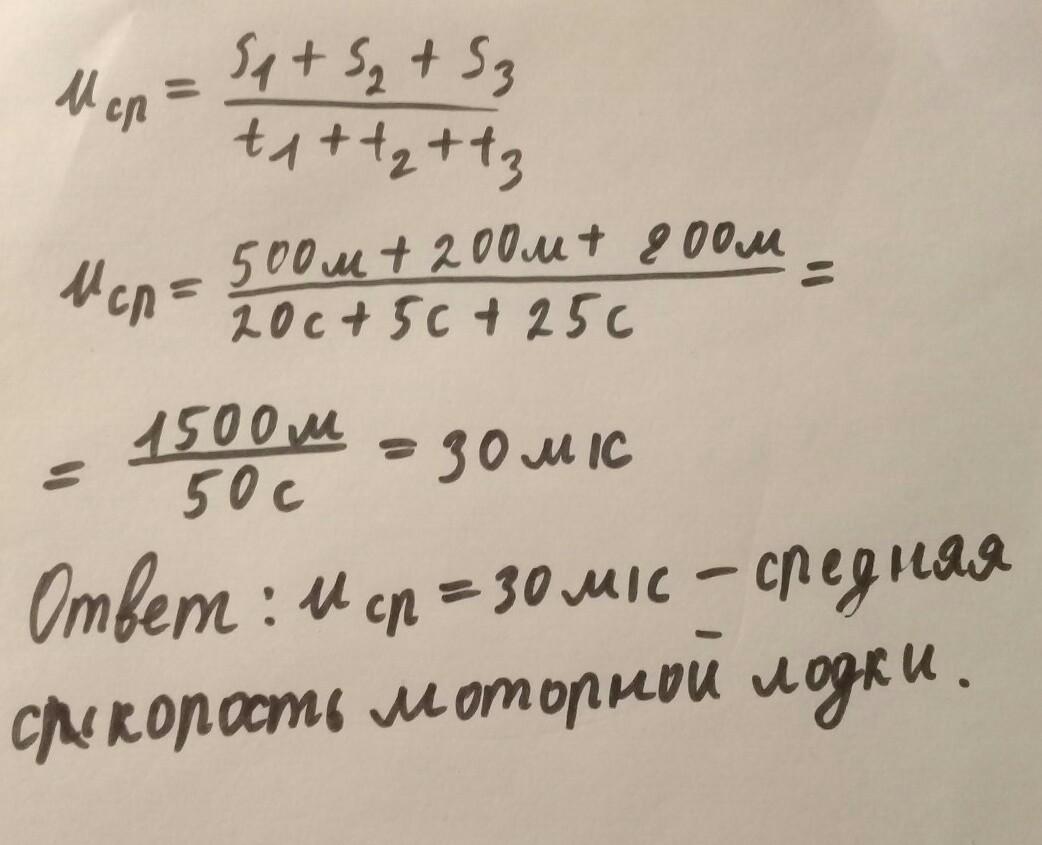 u ср = s1 + s2 + s3
t1 + t2 + t3
u ср = 500м + 200м + 800м =
20с + 5с + 25с
= 1500м = 30 м/с
50с
Ответ: u ср = 30 м/с – средняя
скорость моторной лодки.